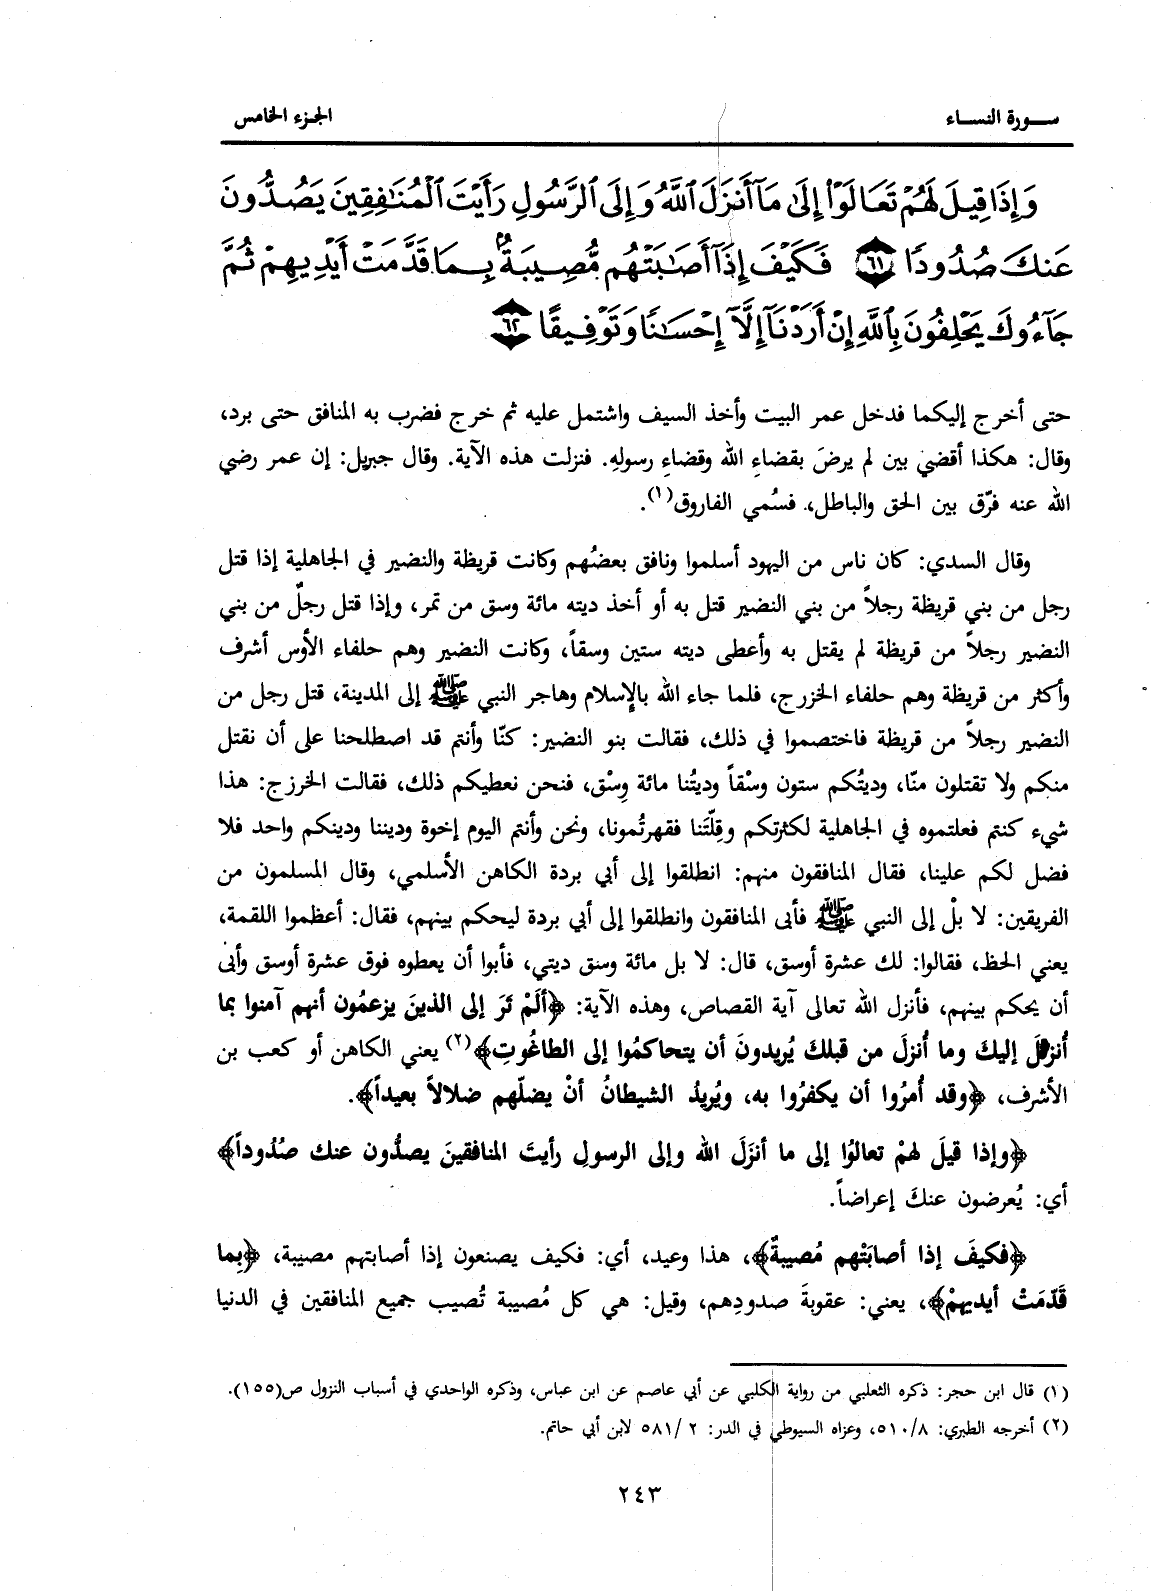 سورة النساء
الجزء الخامس
وَإِذَا قِيلَ لَهُمْ تَعَالَوْا۟ إِلَىٰ مَآ أَنزَلَ ٱللَّهُ وَإِلَى ٱلرَّسُولِ رَأَيْتَ ٱلْمُنَـٰفِقِينَ يَصُدُّونَ
عَنكَ صُدُودًا ٦١ فَكَيْفَ إِذَآ أَصَـٰبَتْهُم مُّصِيبَةٌۢ بِمَا قَدَّمَتْ أَيْدِيهِمْ ثُمَّ
جَآءُوكَ يَحْلِفُونَ بِٱللَّهِ إِنْ أَرَدْنَآ إِلَّآ إِحْسَـٰنًا وَتَوْفِيقًا ٦٢
حتى أخرج إليكما فدخل عمر البيت وأخذ السيف واشتمل عليه ثم خرج فضرب به المنافق حتى برد،
وقال: هكذا أقضي بين لم يرضَ بقضاءِ الله وقضاءِ رسولهِ. فنزلت هذه الآية. وقال جبريل: إن عمر رضي
الله عنه فرّق بين الحق والباطل، فسُمي الفاروق(١).
وقال السدي: كان ناس من اليهود أسلموا ونافق بعضُهم وكانت قريظة والنضير في الجاهلية إذا قتل
رجل من بني قريظة رجلاً من بني النضير قتل به أو أخذ ديته مائة وسق من تمر، وإذا قتل رجلّ من بني
النضير رجلاً من قريظة لم يقتل به وأعطى ديته ستين وسقاً، وكانت النضير وهم حلفاء الأوس أشرف
وأكثر من قريظة وهم حلفاء الخزرج، فلما جاء الله بالإسلام وهاجر النبي ﷺ إلى المدينة، قتل رجل من
النضير رجلاً من قريظة فاختصموا في ذلك، فقالت بنو النضير: كنّا وأنتم قد اصطلحنا على أن نقتل
منكم ولا تقتلون منّا، وديتُكم ستون وسْقاً وديتُنا مائة وِسْق، فنحن نعطيكم ذلك، فقالت الخرزج: هذا
شيء كنتم فعلتموه في الجاهلية لكثرتكم وقِلّتَنا فقهرتُمونا، ونحن وأنتم اليوم إخوة وديننا ودينكم واحد فلا
فضل لكم علينا، فقال المنافقون منهم: انطلقوا إلى أبي بردة الكاهن الأسلمي، وقال المسلمون من
الفريقين: لا بلْ إلى النبي ﷺ فأبى المنافقون وانطلقوا إلى أبي بردة ليحكم بينهم، فقال: أعظموا اللقمة،
يعني الحظ، فقالوا: لك عشرة أوسق، قال: لا بل مائة وسق ديتي، فأبوا أن يعطوه فوق عشرة أوسق وأبى
أن يحكم بينهم، فأنزل الله تعالى آية القصاص، وهذه الآية: ﴿ألَمْ تَرَ إلى الذينَ يزعمُون أنهم آمنوا بما
أُنزلَ إليكَ وما أُنزلَ من قبلكَ يُريدونَ أن يتحاكمُوا إلى الطاغُوتِ﴾(٢) يعني الكاهن أو كعب بن
الأشرف، ﴿وقد أُمرُوا أن يكفرُوا به، ويُريدُ الشيطانُ أنْ يضلّهم ضلالاً بعيداً﴾.
﴿وإذا قيلَ لهمْ تعالوُا إلى ما أنزَلَ الله وإلى الرسولِ رأيتَ المنافقينَ يصدُّون عنك صُدُوداً﴾
أي: يُعرضون عنكَ إعراضاً.
﴿فكيفَ إذا أصابَتْهم مُصيبةٌ﴾، هذا وعيد، أي: فكيف يصنعون إذا أصابتهم مصيبة، ﴿بِما
قَدّمَتْ أيديهمْ﴾، يعني: عقوبةَ صدودِهم، وقيل: هي كل مُصيبة تُصيب جميع المنافقين في الدنيا
(١) قال ابن حجر: ذكره الثعلبي من رواية الكلبي عن أبي عاصم عن ابن عباس، وذكره الواحدي في أسباب النزول ص(١٥٥).
(٢) أخرجه الطبري: ٥١٠/٨، وعزاه السيوطي في الدر: ٥٨١/٢ لابن أبي حاتم.
٢٤٣